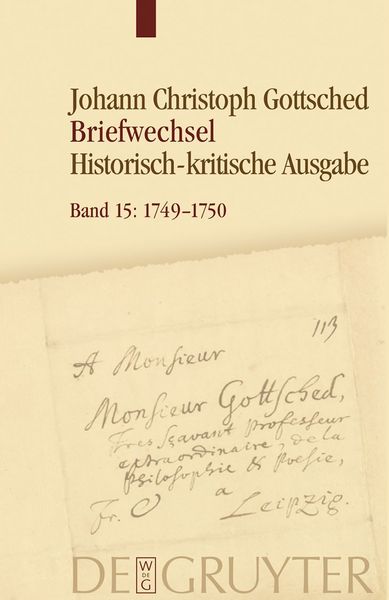 Johann Christoph Gottsched
Briefwechsel
Historisch-kritische Ausgabe
Band 15: 1749–1750
113
A Monsieur
Monsieur Gottsched,
Tres Sçavant Professeur
extraordinaire, de la
Philosophie & Poesie,
a
Fr. O Leipzig.
DE GRUYTER
W
DE
G